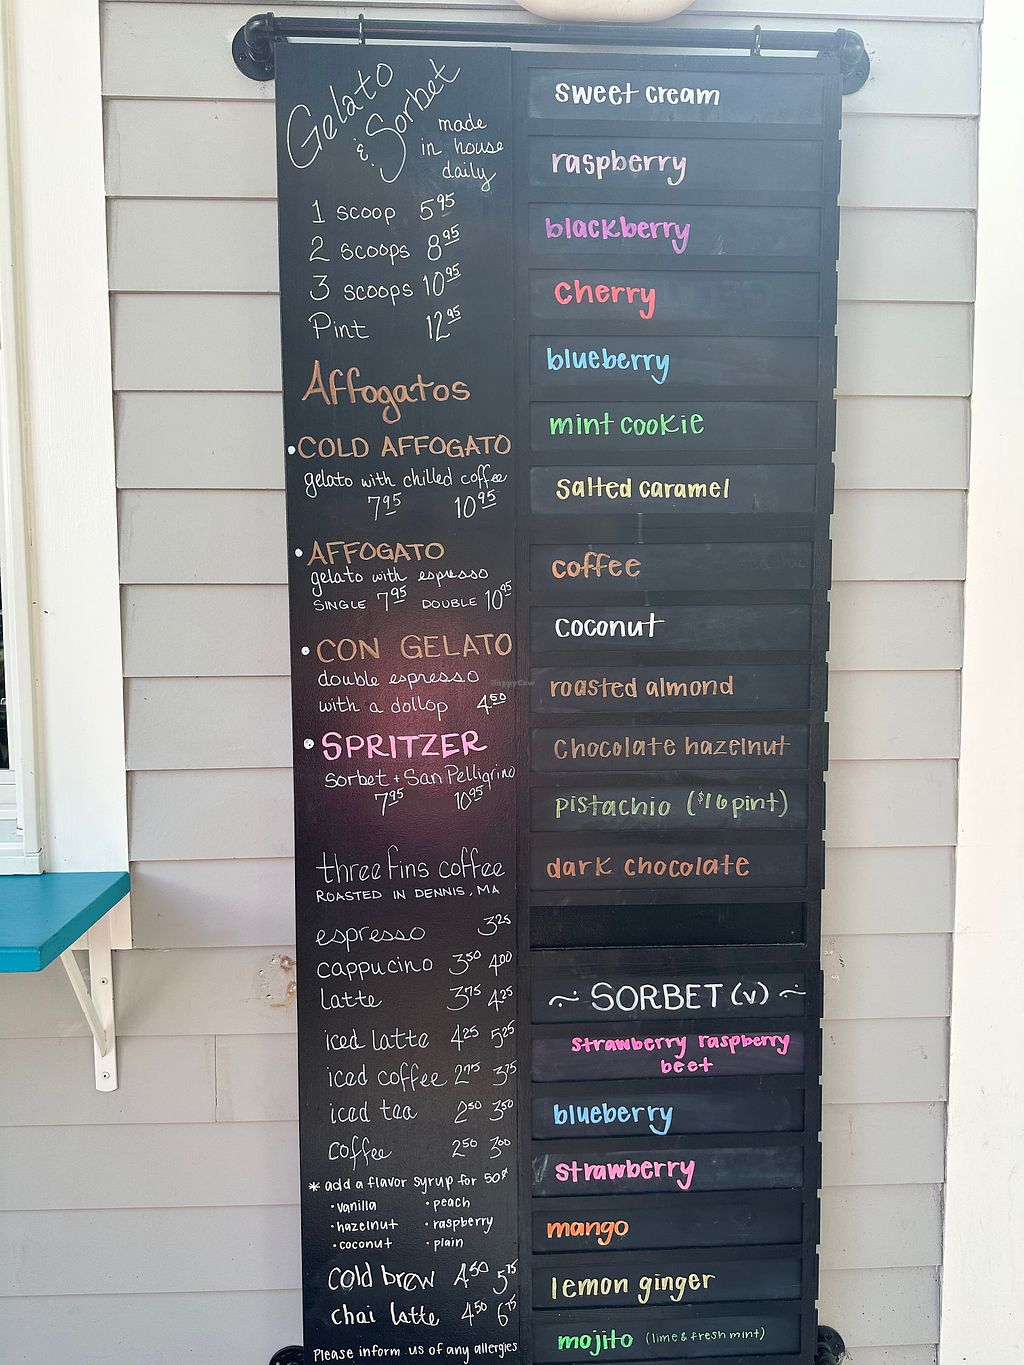 Gelato
& Sorbet
made
in house
daily
1 scoop 5.95
2 scoops 8.95
3 scoops 10.95
Pint 12.95
Affogatos
• COLD AFFOGATO
gelato with chilled coffee
7.95 10.95
• AFFOGATO
gelato with espresso
SINGLE 7.95 DOUBLE 10.95
• CON GELATO
double espresso
with a dollop 4.50
• SPRITZER
Sorbet + San Pelligrino
7.95 10.95
three fins coffee
ROASTED IN DENNIS, MA
espresso 3.25
cappucino 3.50 4.00
latte 3.75 4.25
iced latte 4.25 5.25
iced coffee 2.75 3.75
iced tea 2.50 3.50
coffee 2.50 3.00
* add a flavor syrup for 50¢
• vanilla • peach
• hazelnut • raspberry
• coconut • plain
cold brew 4.50 5.75
chai latte 4.50 6.75
Please inform us of any allergies
sweet cream
raspberry
blackberry
cherry
blueberry
mint cookie
salted caramel
coffee
coconut
roasted almond
chocolate hazelnut
pistachio ($16 pint)
dark chocolate
~ SORBET (v) ~
strawberry raspberry
beet
blueberry
strawberry
mango
lemon ginger
mojito (lime & fresh mint)
HappyCow